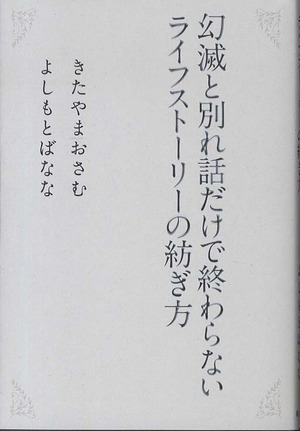 幻滅と別れ話だけで終わらない
ライフストーリーの紡ぎ方
きたやまおさむ
よしもとばなな